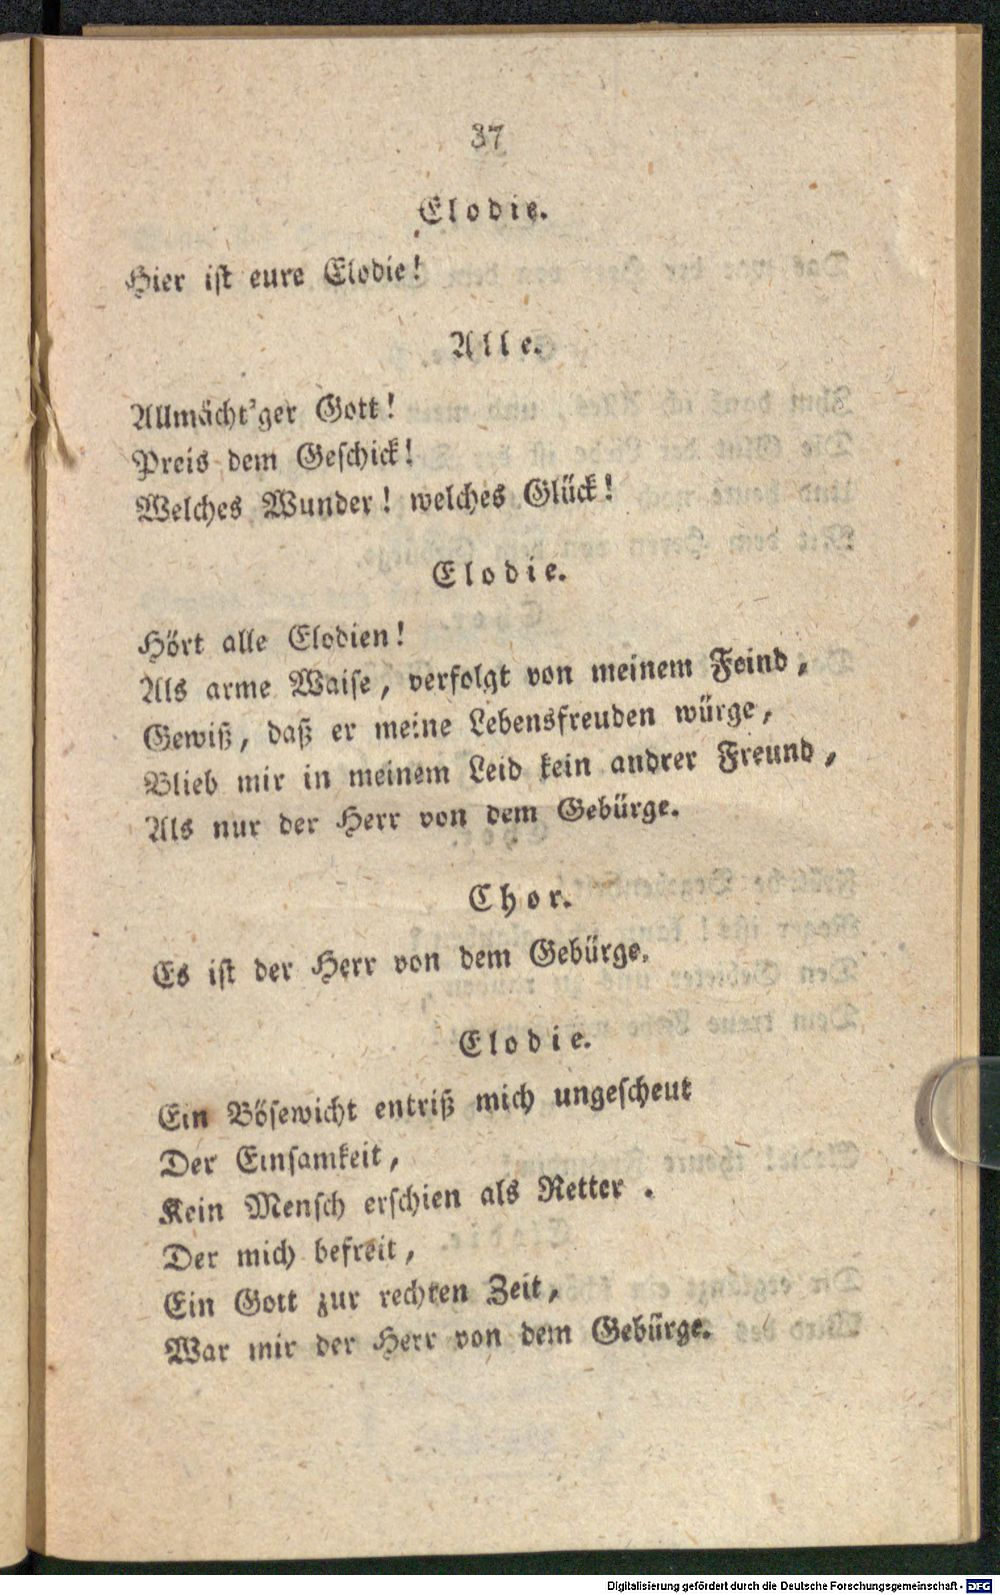 37
Elodie.
Hier ist eure Elodie!
Alle.
Allmächt'ger Gott!
Preis dem Geschick!
Welches Wunder! welches Glück!
Elodie.
Hört alle Elodien!
Als arme Waise, verfolgt von meinem Feind,
Gewiß, daß er meine Lebensfreuden würge,
Blieb mir in meinem Leid kein andrer Freund,
Als nur der Herr von dem Gebürge.
Chor.
Es ist der Herr von dem Gebürge.
Elodie.
Ein Bösewicht entriß mich ungescheut
Der Einsamkeit,
Kein Mensch erschien als Retter .
Der mich befreit,
Ein Gott zur rechten Zeit,
War mir der Herr von dem Gebürge.
Digitalisierung gefördert durch die Deutsche Forschungsgemeinschaft - DFG